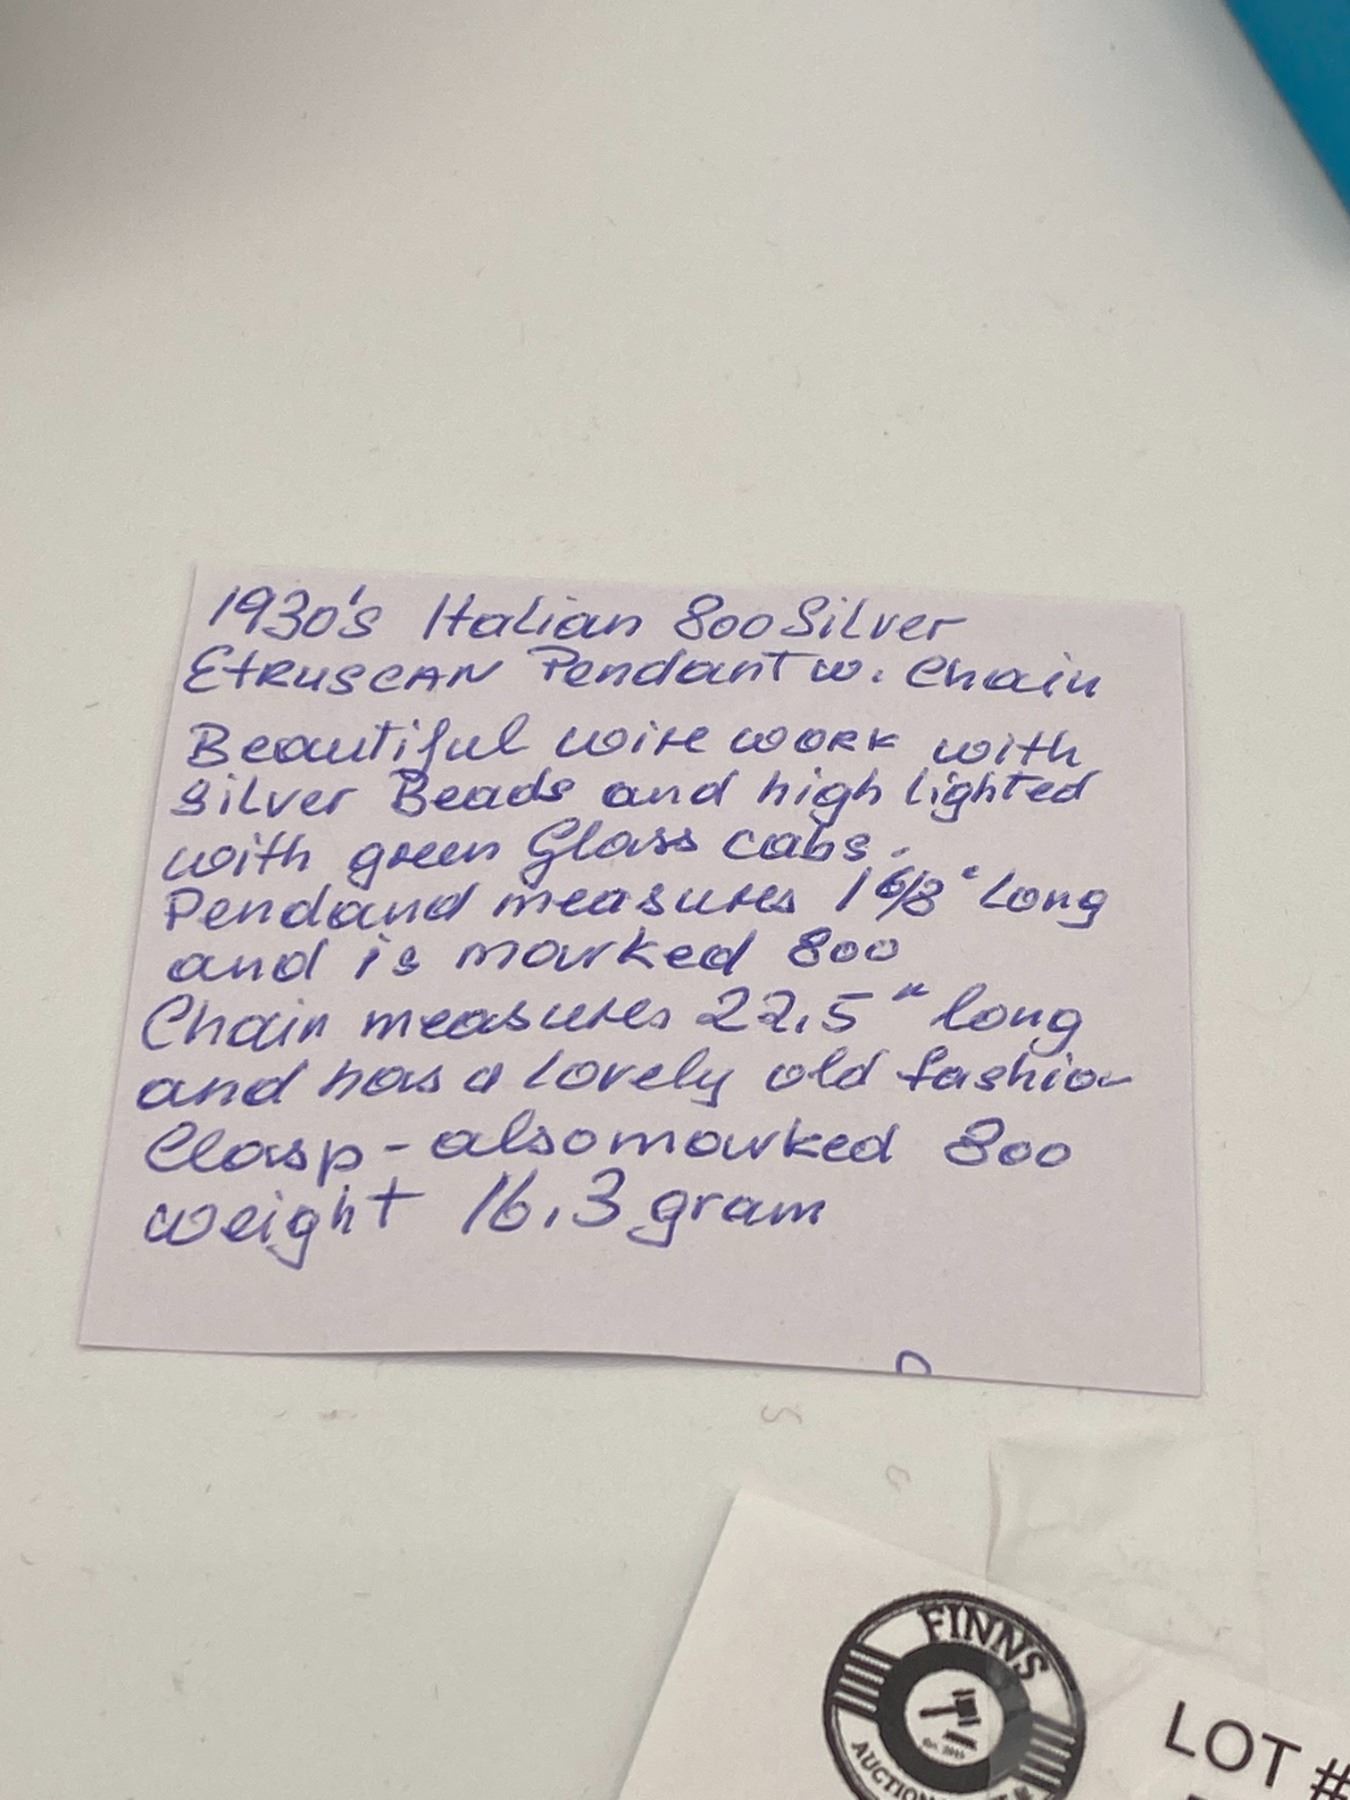 1930's Italian 800 Silver
EtRUSCAN Pendant w. Chain
Beautiful wire work with
Silver Beads and high lighted
with green Glass cabs.
Pendand measures 1 6/8" Long
and is marked 800
Chain measures 22.5" long
and has a lovely old fashion
Clasp - also marked 800
weight 16.3 gram
FINNS
Est. 2015
AUCTION
LOT #